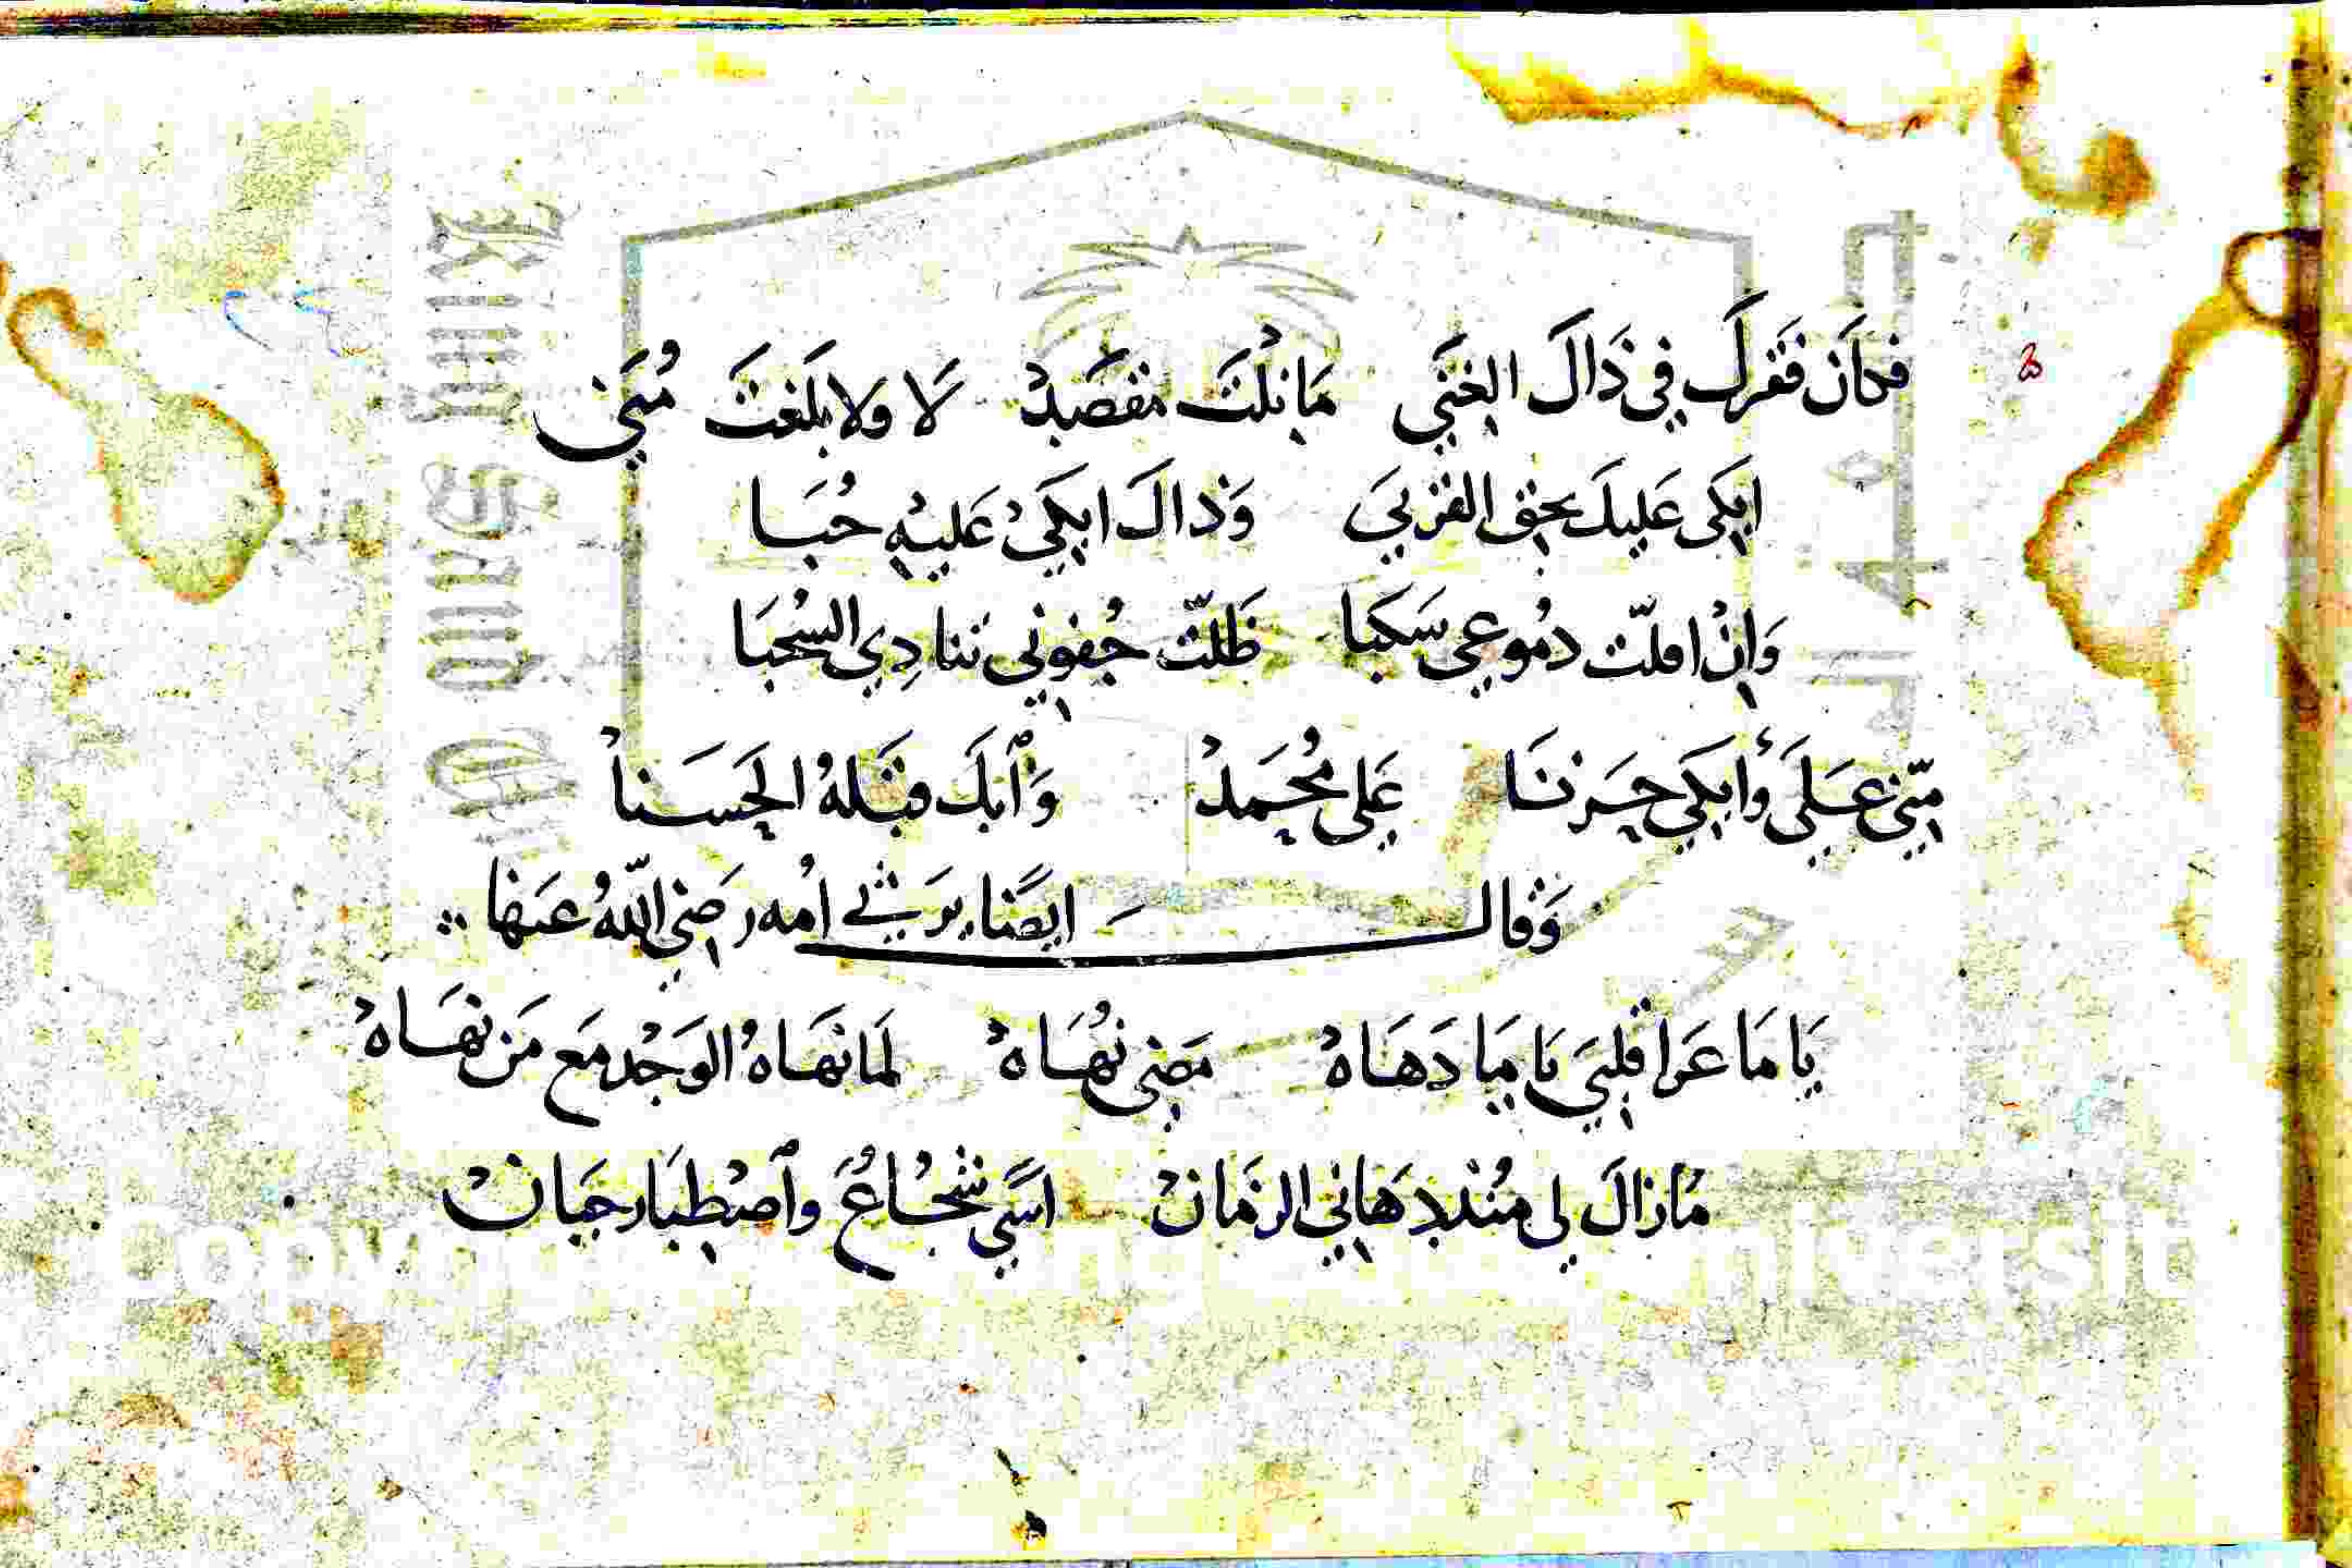 فكَان فَقرك في ذَاكَ الغنَى مَا نِلتَ مقصَدْ لَا ولا بلَغتَ مُنَى
ابكَى عَليكَ بحق القربيَ وَذاكَ ابكيْ عَليْهِ حُبَا
وَانْ اقلّت دمُوعي سَكبا ظَلتّ جُفوني تنادِي السُحبَا
منّي عَلَى وُابكَي حَزنَا عَلى مُحَمدْ وَٱبكَ قبَلهُ الحَسَنا
وَقال ايضًا يرَثي اُمه رضي اللّهُ عنها
يَا مَا عَرا قلبيَ يَا مَا دَهَاهْ مضى نُهَاهْ لمَا نهَاهُ الوَجْد مَع مَن نهَاهْ
مَازالَ لي منُذ دهَاني الزمَانْ اسًي شجُاعُ واصْطِبَار جَبَانْ